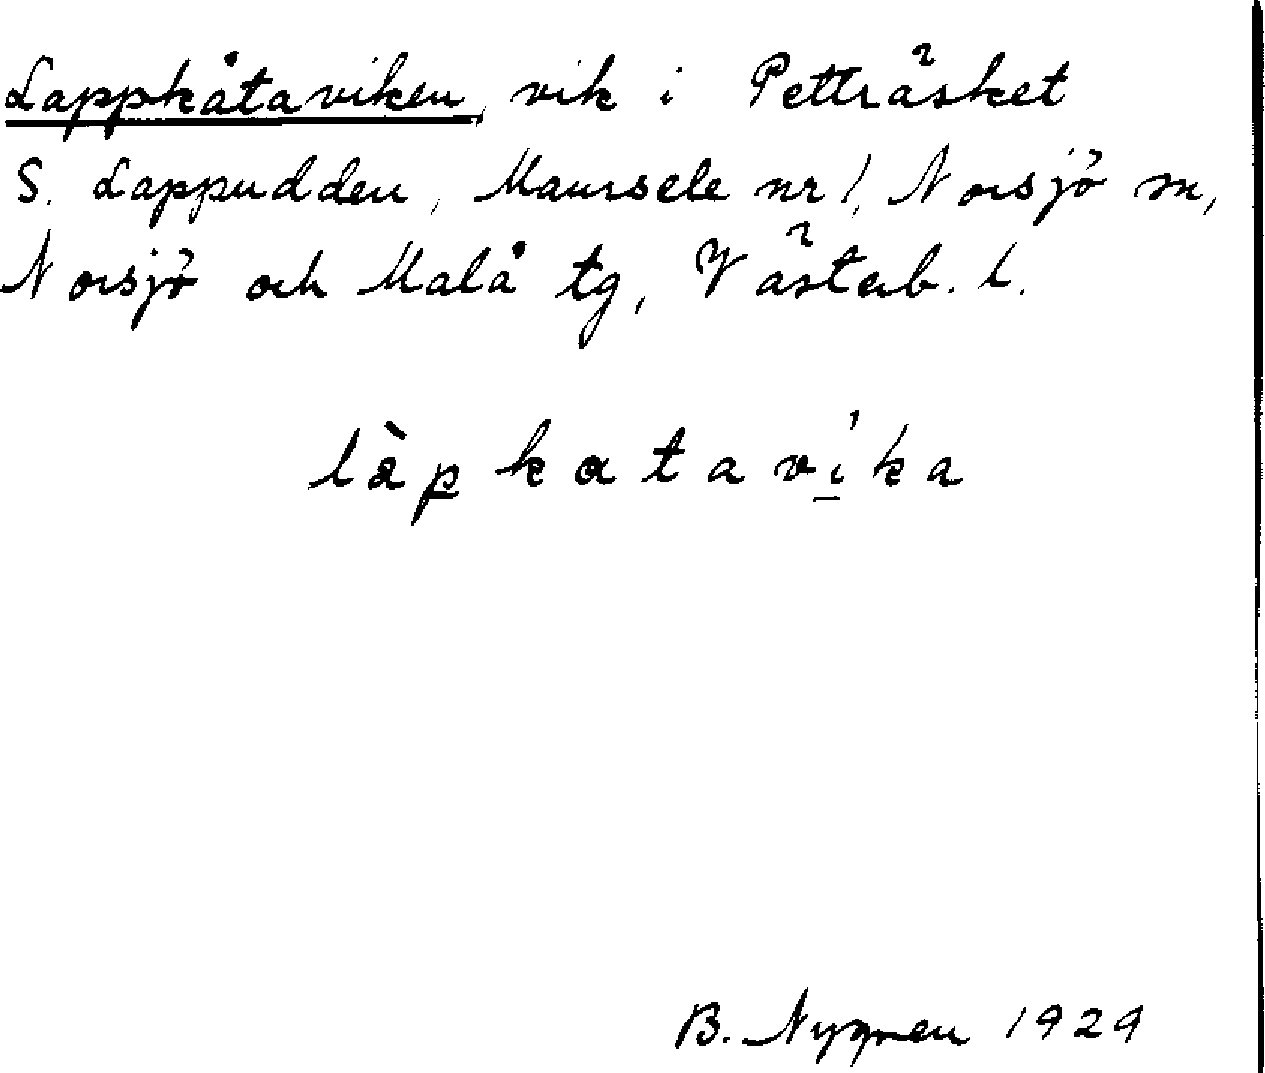 Lappkåtaviken, vik i Petträsket
S. Lappudden, Maursele nr 1, Norsjö sn,
Norsjö och Malå tg, Västerb. l.
làpkatavíka
B. Nygren 1929